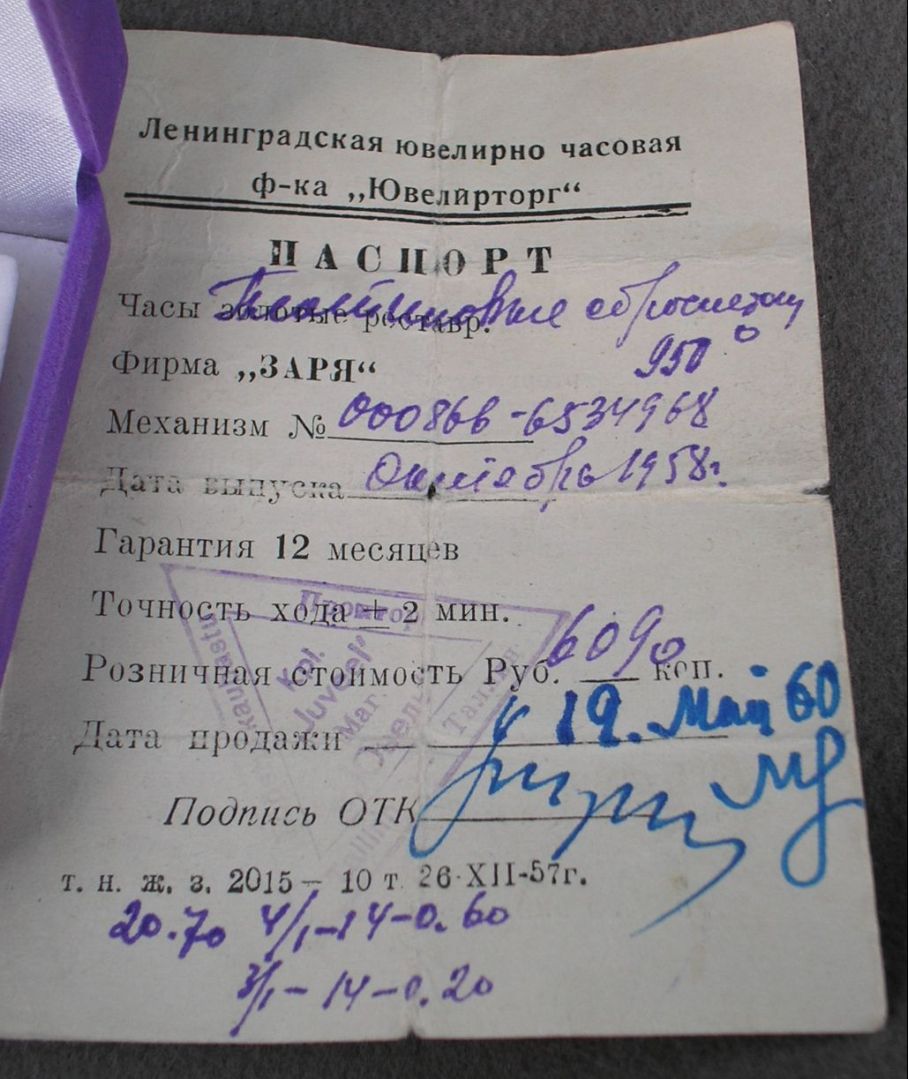 Ленинградская ювелирно часовая
ф-ка „Ювелирторг“
ПАСПОРТ
Часы золотые реставр. Платиновые
950°
Фирма „ЗАРЯ“
Механизм № 000866-6534968
Дата выпуска Октябрь 1958г.
Гарантия 12 месяцев
Точность хода ± 2 мин.
Розничная стоимость Руб. 6090 коп.
Дата продажи 19. Май 60
Подпись ОТК
т. н. ж. з. 2015 – 10 т. 26-XII-57г.
20.70 4/1-14-0.60
3/1-14-0.20
Промтор
Kpl.
"Juveel"
Маг.
Таллин